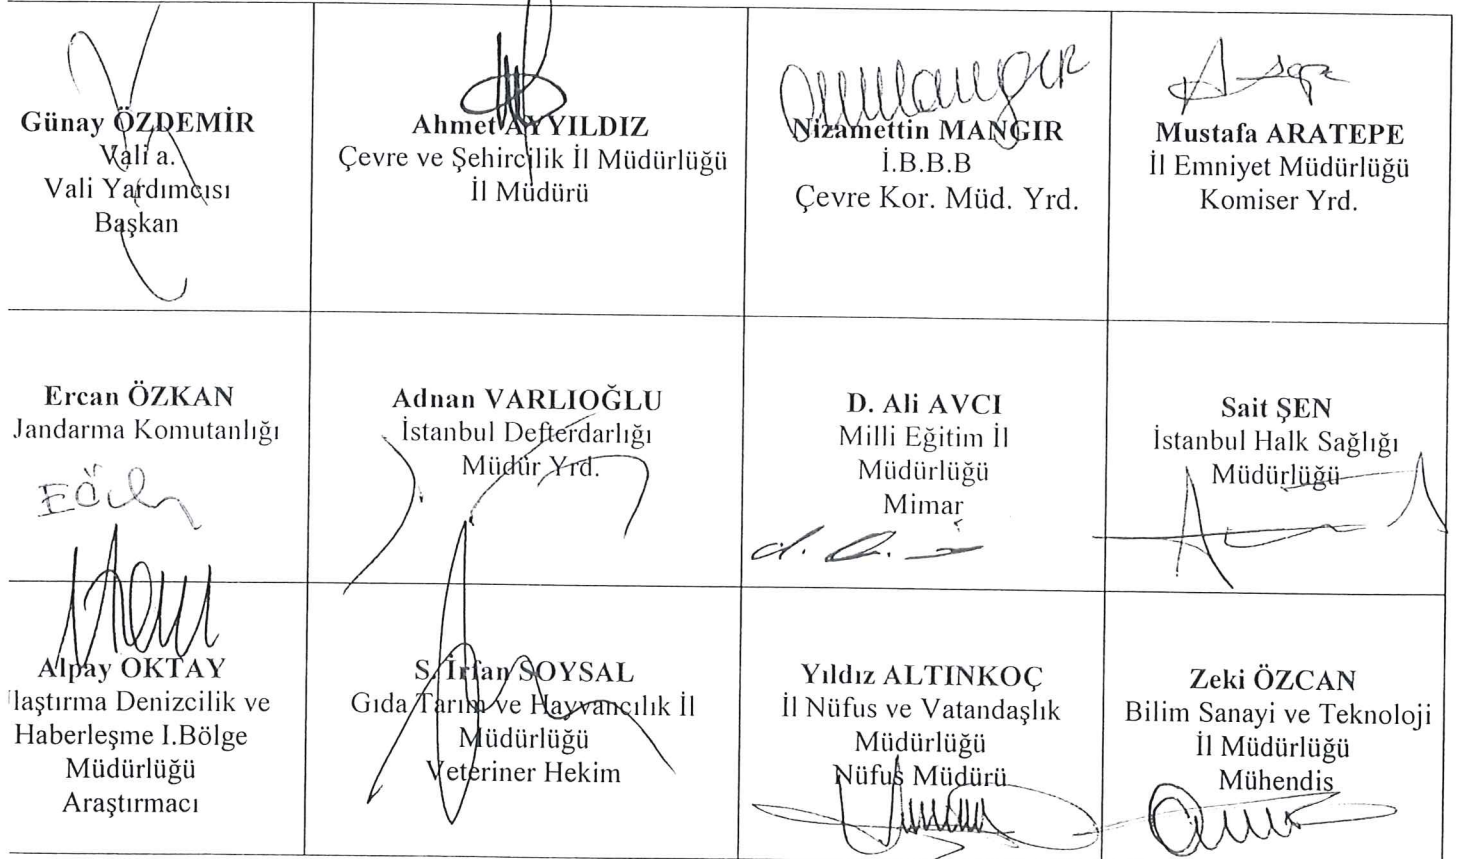 Günay ÖZDEMİR
Vali a.
Vali Yardımcısı
Başkan
Ahmet AYYILDIZ
Çevre ve Şehircilik İl Müdürlüğü
İl Müdürü
Nizamettin MANGIR
İ.B.B.B
Çevre Kor. Müd. Yrd.
Mustafa ARATEPE
İl Emniyet Müdürlüğü
Komiser Yrd.
Ercan ÖZKAN
Jandarma Komutanlığı
Adnan VARLIOĞLU
İstanbul Defterdarlığı
Müdür Yrd.
D. Ali AVCI
Milli Eğitim İl
Müdürlüğü
Mimar
Sait ŞEN
İstanbul Halk Sağlığı
Müdürlüğü
Alpay OKTAY
laştırma Denizcilik ve
Haberleşme I.Bölge
Müdürlüğü
Araştırmacı
S. İrfan SOYSAL
Gıda Tarım ve Hayvancılık İl
Müdürlüğü
Veteriner Hekim
Yıldız ALTINKOÇ
İl Nüfus ve Vatandaşlık
Müdürlüğü
Nüfus Müdürü
Zeki ÖZCAN
Bilim Sanayi ve Teknoloji
İl Müdürlüğü
Mühendis